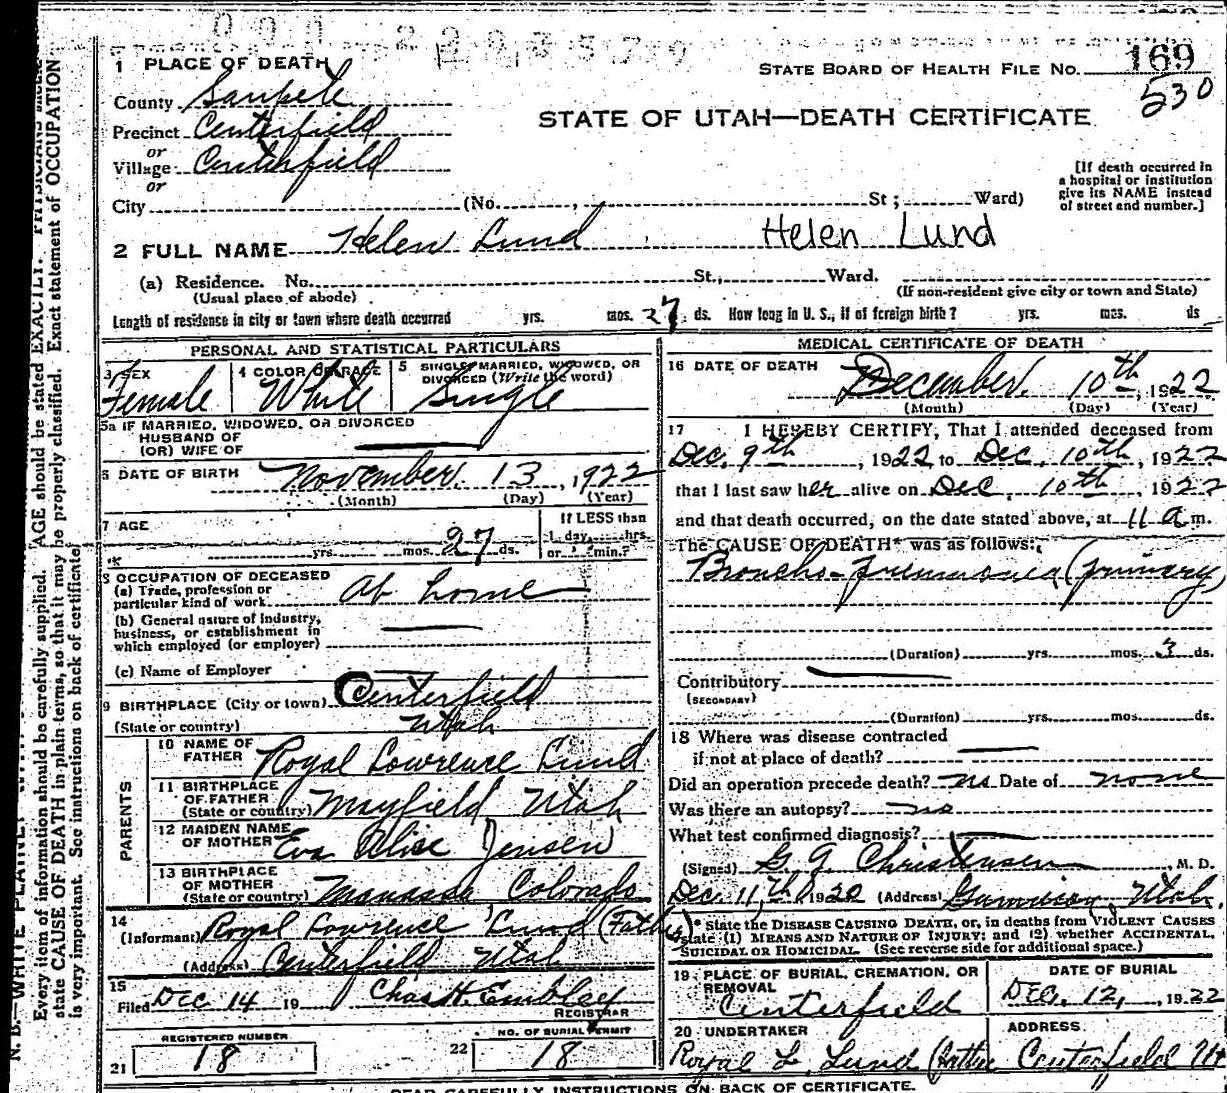 1 PLACE OF DEATH
STATE BOARD OF HEALTH FILE No. 169
530
County Sanpete
STATE OF UTAH—DEATH CERTIFICATE
Precinct Centerfield
or
Village Centerfield
or
City (No. , St ; Ward)
[If death occurred in
a hospital or institution
give its NAME instead
of street and number.]
2 FULL NAME Helen Lund Helen Lund
(a) Residence. No. St., Ward.
(Usual place of abode) (If non-resident give city or town and State)
Length of residence in city or town where death occurred yrs. mos. 27 ds. How long in U. S., if of foreign birth? yrs. mos. ds
PERSONAL AND STATISTICAL PARTICULARS
3 SEX Female
4 COLOR OR RACE White
5 SINGLE, MARRIED, WIDOWED, OR
DIVORCED (Write the word) Single
5a IF MARRIED, WIDOWED, OR DIVORCED
HUSBAND OF
(OR) WIFE OF
6 DATE OF BIRTH November 13, 1922
(Month) (Day) (Year)
7 AGE yrs. mos. 27 ds.
If LESS than
1 day, hrs.
or min.?
8 OCCUPATION OF DECEASED
(a) Trade, profession or
particular kind of work At home
(b) General nature of industry,
business, or establishment in
which employed (or employer)
(c) Name of Employer
9 BIRTHPLACE (City or town) Centerfield
(State or country) Utah
PARENTS
10 NAME OF
FATHER Royal Lowrence Lund
11 BIRTHPLACE
OF FATHER
(State or country) Mayfield, Utah
12 MAIDEN NAME
OF MOTHER Eva Alice Jensen
13 BIRTHPLACE
OF MOTHER
(State or country) Manassa Colorado
14
(Informant) Royal Lowrence Lund (Father)
(Address) Centerfield Utah
15
Filed Dec 14 19 Chas H. Embley
REGISTRAR
REGISTERED NUMBER
21 18
NO. OF BURIAL PERMIT
22 18
MEDICAL CERTIFICATE OF DEATH
16 DATE OF DEATH
December. 10th, 1922
(Month) (Day) (Year)
17 I HEREBY CERTIFY, That I attended deceased from
Dec. 9th, 1922 to Dec. 10th, 1922
that I last saw her alive on Dec. 10th, 1922
and that death occurred, on the date stated above, at 11 a m.
The CAUSE OF DEATH* was as follows:
Broncho-pneumonia (primary)
(Duration) yrs. mos. 3 ds.
Contributory
(SECONDARY)
(Duration) yrs. mos. ds.
18 Where was disease contracted
if not at place of death?
Did an operation precede death? no Date of none
Was there an autopsy? no
What test confirmed diagnosis?
(Signed) G. J. Christensen, M. D.
Dec. 11th, 1920 (Address) Gunnison, Utah.
* State the DISEASE CAUSING DEATH, or, in deaths from VIOLENT CAUSES
state (1) MEANS AND NATURE OF INJURY; and (2) whether ACCIDENTAL,
SUICIDAL OR HOMICIDAL. (See reverse side for additional space.)
19 PLACE OF BURIAL, CREMATION, OR
REMOVAL Centerfield
DATE OF BURIAL
DEC. 12, 1922
20 UNDERTAKER
Royal L. Lund (father
ADDRESS
Centerfield Ut
READ CAREFULLY INSTRUCTIONS ON BACK OF CERTIFICATE.
N. B.—WRITE PLAINLY
Every item of information should be carefully supplied. AGE should be stated EXACTLY. PHYSICIANS
state CAUSE OF DEATH in plain terms, so that it may be properly classified. Exact statement of OCCUPATION
is very important. See instructions on back of certificate.